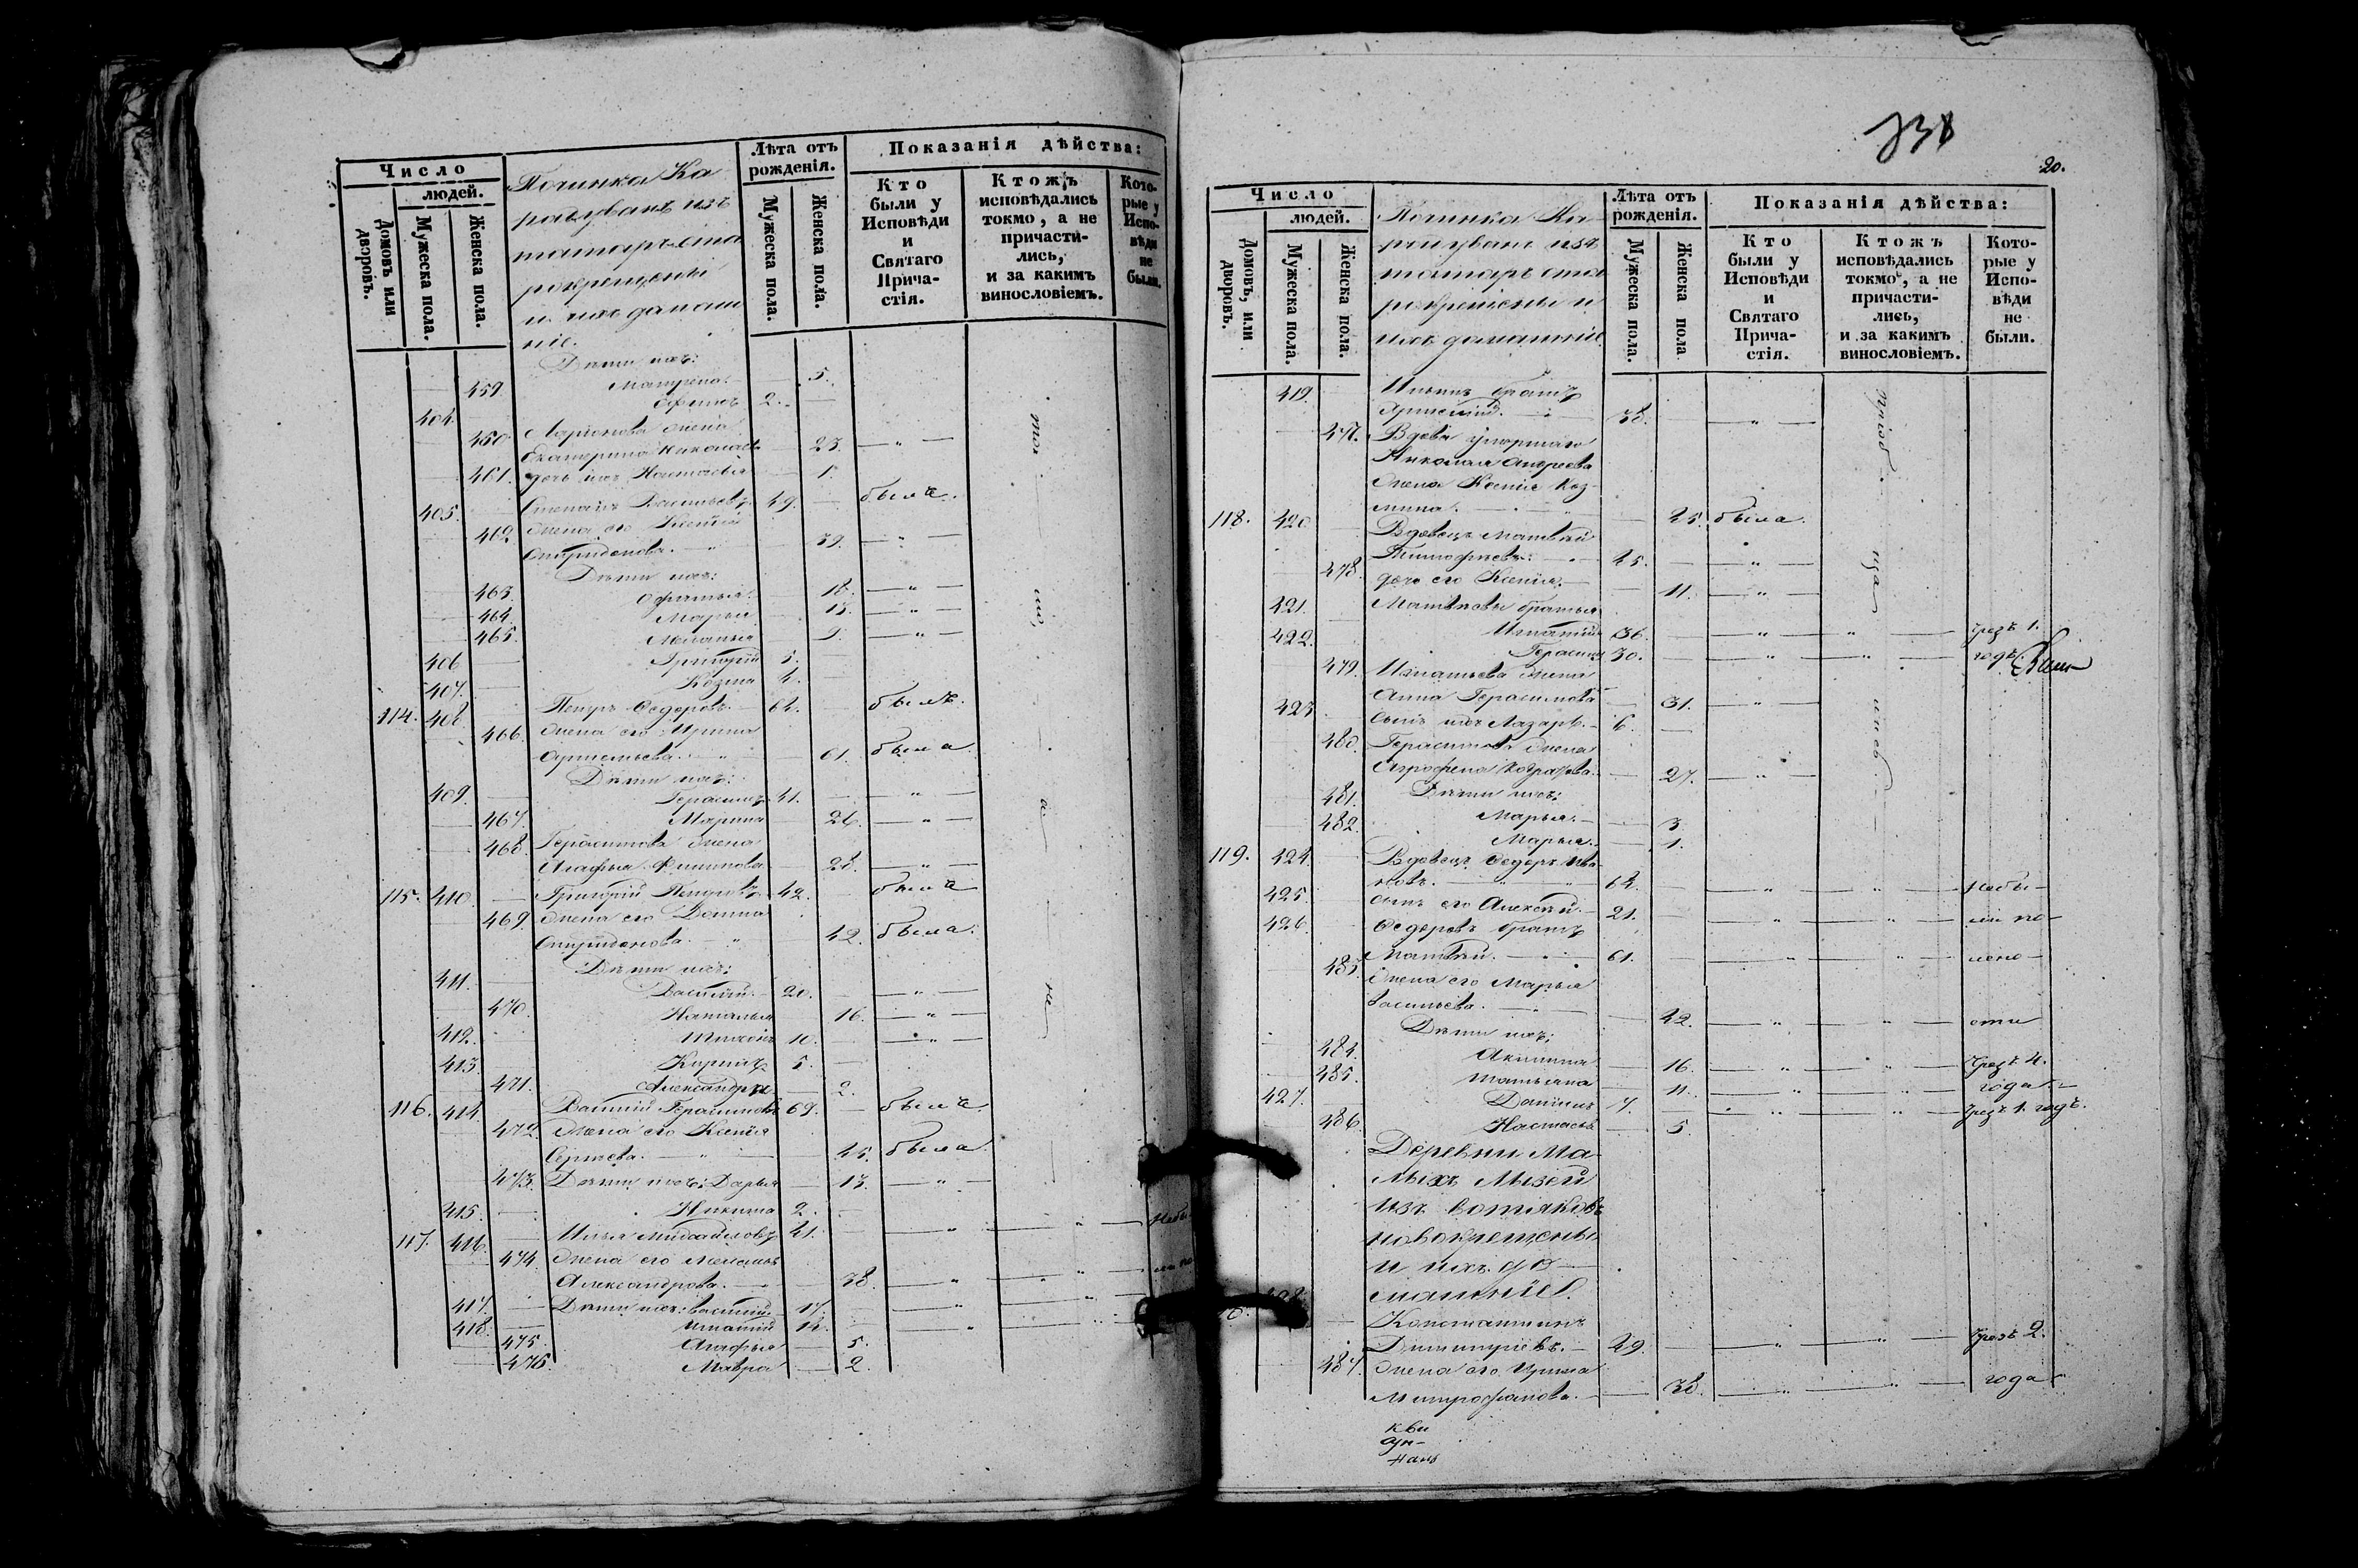 Число
людей.
Домовъ или дворовъ.
Мужеска пола.
Женска пола.
Починка Ка
радуванъ изъ
татаръ ста
рокрещены
и ихъ домаш
ніе.
Лѣта отъ рожденія.
Мужеска пола.
Женска пола.
Показанія дѣйства:
Кто были у Исповѣди и Святаго Прича-стія.
Ктожъ исповѣдались токмо, а не причасти-лись, и за какимъ винословіемъ.
Кото-рые у Испо-вѣди не были.
Дѣти ихъ:
459. Матрена. — 5.
404. Ефимъ 2. —
460. Ларіонова жена
Екатерина Николаева 23. — „ —
461. дочь ихъ Настасья 1.
405. Степанъ Васильевъ 49. — былъ.
462. жена его Ксенія
Спиридонова. — „ 39. — „ —
Дѣти ихъ:
463. Офимья. 18. — „ —
464. Марья 13. — „ —
465. Меланья 9. — „ —
406 Григорій 5.
407. Козма 4.
114. 408 Петръ Федоровъ. — 64. былъ.
466. жена его Ирина
Артемьева. — „ — 61. была.
Дѣти ихъ:
409. Герасимъ 41. — „ —
467. Марина 26. — „ —
468. Герасимова жена
Агафья Филипова 28. — „ —
115. 410. Григорій Петровъ 42. былъ
469. жена его Домна
Спиридонова. — „ — 42. была.
Дѣти ихъ:
411. Василій. — 20. — „ —
470. Наталья 16. — „ —
412. Тихонъ 10. — „ —
413. Карпъ 5.
471. Александра — 2.
116. 414. Василій Герасимовъ 69. — былъ.
472. жена его Ксенія
Сергѣева. — „ — 45. была.
473. Дѣти ихъ: Дарья — 13. — „ —
415. Никита 2.
117. 416. Илья Михайловъ 41. — „ — „ — Небы
474. жена его Меланья
Александрова. — 38. — „ — „ — ли по
417. Дѣти ихъ: Василій 17. — „ — „
418. Игнатій 14. — „ — „
475. Агафья — 5.
476. Мавра — 2.
20.
Число
людей.
Домовъ, или дворовъ.
Мужеска пола.
Женска пола.
Починка Ка
радуванъ изъ
татаръ ста
рокрещены и
ихъ домашніе.
Лѣта отъ рожденія.
Мужеска пола.
Женска пола
Показанія дѣйства:
Кто были у Исповѣди и Святаго Прича-стія.
Ктожъ исповѣдались токмо, а не причасти-лись, и за какимъ винословіемъ.
Кото-рые у Испо-вѣди не были.
419. Ильинъ братъ
Артемій. — „ — 38. — „ —
477. Вдова умершаго
Николая Андреева
жена Ксенія Коз-
мина. — „ — 25. была.
118. 420. Вдовецъ Матвѣй
Тимофѣевъ. — „ 45. — „ —
478. дочь его Ксенія. — 11. — „ —
421. Матвѣевы братья
Игнатій 36. — „ — „ — Чрезъ 1.
422. Герасимъ 30. — „ — „ — годъ.
479. Игнатьева жена
Анна Герасимова — 31. — „ —
423. Сынъ ихъ Лазарь. — 6. —
480. Герасимова жена
Агрофена — 27. — „ —
Дѣти ихъ:
481. Марья. — 3.
482. Марья. — 1.
119. 424. Вдовецъ Федоръ Ива
новъ. — „ — 64. — „ — „ — Небы-
425. сынъ его Алексѣй. — 21. — „ — „ — ли по-
426. Федоровъ братъ
Матвѣй. — „ — 61. — „ — „ — лено-
483. жена его Марья
Васильева. — „ — 42. — „ — „ — сти
Дѣти ихъ:
484. Акилина — 16. — „ — „ — Чрезъ 4.
485. Татьяна — 11. — „ — „ — года. —
427. Данилъ 7. — „ — „ — Чрезъ 1. годъ.
486. Настасья — 5.
Деревни Ма-
лыхъ Лызей
изъ вотяковъ
новокрещены
и ихъ до—
машніе.
Константинъ
Димитріевъ. — 29. — „ — „ — Чрезъ 2.
487. жена его Ирина
Митрофанова. — 38. — „ — „ — года